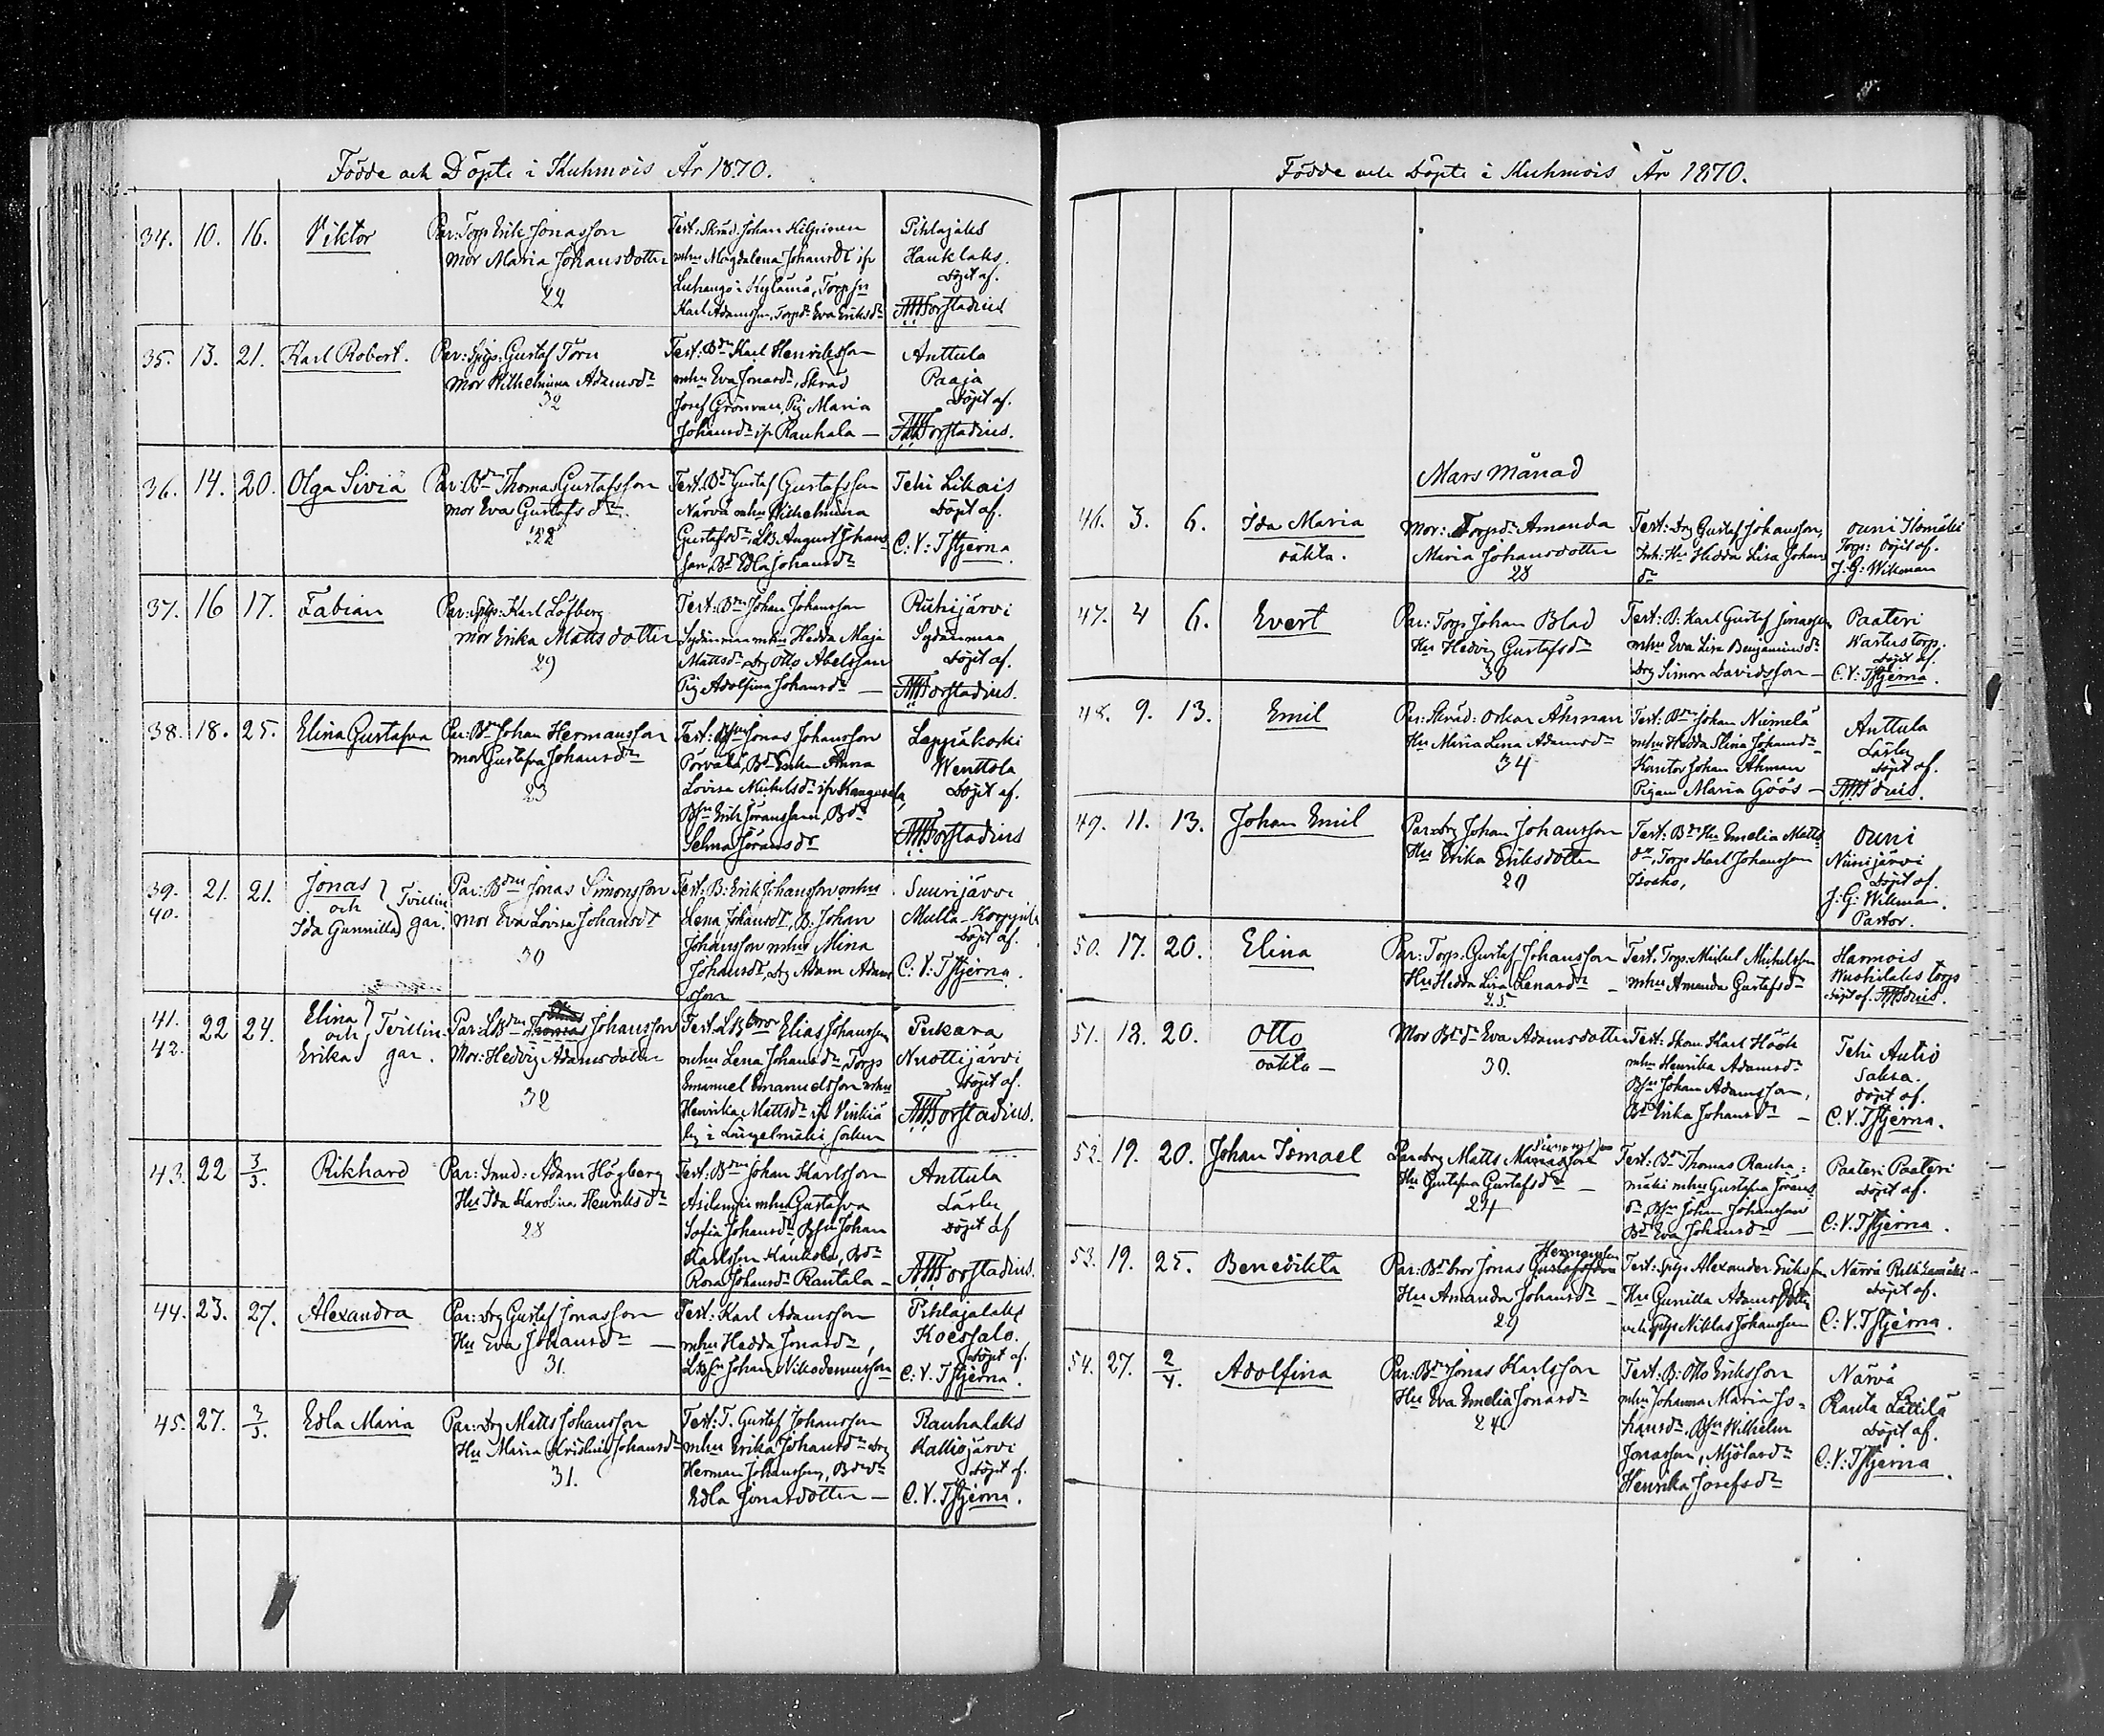 Födde och Döpte i Kuhmois År 1870.
34. 10. 16. Viktor
Par: Torp Erik Jonasson
mor Maria Johansdotter
22
Test: Skräd. Johan Hilpinen
mhu Magdalena Johansdr ifr
Luhango i Kylämä, Torpsn
Karl Adamsson, Torpdr Eva Eriksdr
Pihlajaks
Hauklaks.
döpt af.
Forstadius
35. 13. 21. Karl Robert.
Par: Spgs: Gustaf Törn
mor Wilhelmina Adamsdr
32
Test: Bdn Karl Henriksson
mhu Eva Jonasdr, Skräd
Josef Grönvall, Pig Maria
Johansdr ifr Rauhala —
Anttula
Paaja
döpt af.
Forstadius.
36. 14. 20. Olga Siviä
Par: Bdn Thomas Gustafsson
mor Eva Gustafsdr.
28
Test: Bdn Gustaf Gustafsson
Närvä mhu Wilhelmina
Gustafsdr, LB August Johans
son, Bdr Edla Johansdr
Tehi Likais
döpt af.
C: V: Tstjerna.
37. 16 17. Fabian
Par: Spgs: Karl Löfberg
mor Erika Mattsdotter
29
Test: Bdn Johan Johansson
Sydänmaa mhu Hedda Maja
Mattsdr, Drg Otto Abelsson
Pig Adolfina Johansdr —
Ruhijärvi
Sydänmaa
döpt af.
Forstadius.
38. 18. 25. Elina Gustafva
Par: Bdn Johan Hermansson
mor Gustafva Johansdr
23
Test: Bsn Jonas Johansson
Porvala, Bdr Enkn Anna
Lovisa Michelsdr ifr Kangasala,
Bsn Erik Göransson, Bdr
Selma Göransdr
Leppäkoski
Wenttola
döpt af.
Forstadius
39. 40. 21. 21. Jonas
och
Ida Gunnilla
Tvillin
gar.
Par: Bdn Jonas Simonsson
mor Eva Lovisa Johansdr
30
Test: B: Erik Johansson mhu
Lena Johansdr, B: Johan
Johansson mhu Mina
Johansdr, drg Adam Adams
son
Suurijärvi
Mulla-
döpt af.
C: V: Tstjerna.
41. 42. 22 24. Elina
och
Erika
Tvillin
gar.
Par: LBdn Johansson
Mor: Hedvig Adamsdotter
32
Test: LBbror Elias Johansson
mhu Lena Johansdr, Torp
Emanuel Emanuelsson mhu
Henrika Mattsdr ifr Vinkiä
by i Längelmäki socken
Pukara
Nuottijärvi
döpt af.
Forstadius.
43. 22 3/3. Rikhard
Par: Smed: Adam Högberg
Hu Ida Karolina Henriksdr
28
Test: Bdn Johan Karlsson
mhu Gustafva
Sofia Johansdr, Bsn Johan
Karlsson Kaukola, Bdr
Rosa Johansdr Rautala —
Anttula
Läslu
döpt af
Forstadius.
44. 23. 27. Alexandra
Par: Drg Gustaf Jonasson
Hu Eva Johansdr —
31.
Test: Karl Adamsson
mhu Hedda Jonasdr,
LBsn Johan Nikodemusson
Pihlajalaks
Koessalo.
döpt af.
C: V. Tstjerna.
45. 27. 3/3. Edla Maria
Par: Drg Matts Johansson
Hu Maria Kristina Johansdr
31.
Test: T. Gustaf Johansson
mhu Erika Johansdr drg
Herman Johansson, Bdr
Edla Jonasdotter —
Rauhalaks
Kalliojärvi
döpt af.
C. V. Tstjerna.
Födde och Döpte i Kuhmois År 1870.
Mars Månad
46. 3. 6. Ida Maria
oäkta.
Mor: Torpdr Amanda
Maria Johansdotter
28
Test: Drg Gustaf Johansson,
Inh: Hu Hedda Lisa Johans
dr
Ouni Ilomäki
Torp: döpt af.
J: G: Wikman
47. 4 6. Evert
Par: Torp Johan Blad
Hu Hedvig Gustafsdr
30
Test: B: Karl Gustaf Jonasson
mhu Eva Lisa Benjaminsdr
Drg Simon Davidsson —
Paateri
Wartus torp.
döpt af.
C. V: Tstjerna.
48. 9. 13. Emil
Par: Skräd: Oskar Åhman
Hu Miria Lena Adamsdr
34
Test: Bdn Johan Niemelä
mhu Hedda Stina Johansdr
Kantor Johan Åhman
Pigan Maria Göös —
Anttula
Läslu
döpt af.
49. 11. 13. Johan Emil
Par: drg Johan Johansson
Hu Erika Eriksdotter
20
Test: Bdn Hu Emelia Matts
dr, Torp Karl Johansson
Isoaho,
Ouni
Niinijärvi
döpt af.
J: G: Wikman.
Pastor.
50. 17. 20. Elina
Par: Torp. Gustaf Johansson
Hu Hedda Lisa Lenardr —
25
Test: Torp: Michel Michelsson
mhu Amanda Gustafsdr
Harmois
torp
döpt af.
51. 18. 20. Otto
oäkta —
Mor Bdr Eva Adamsdotter
30.
Test: Skom Karl Höök
mhu Henrika Adamsdr
Bsn Johan Adamsson,
Bdr Erika Johansdr —
Tehi Autio
Saksa.
döpt af.
C. V. Tstjerna.
52. 19. 20. Johan Ismael
Simonsson
Par drg Matts
Hu Gustafva Gustafsdr —
24
Test: Bdn Thomas Rauha:
mäki mhu Gustafva Görans
dr, Bsn Johan Johansson
Bdr Eva Johansdr —
Paateri Paateri
döpt af.
C: V. Tstjerna.
53. 19. 25. Benedikta
Hermansson
Par: Bdn bror Jonas Gustafsson
Hu Amanda Johansdr —
29
Test: Spgs Alexander Eriksson
Hu Gunilla Adamsdotter
och Spgs Niklas Johansson
Närvä
döpt af.
C: V. Tstjerna.
54. 27. 2/4. Adolfina
Par: Bdn Jonas Karlsson
Hu Eva Emelia Jonasdr
24
Test: B: Otto Eriksson
mhu Johanna Maria Jo-
hansdr, Bsn Wilhelm
Jonasson, Mjölardr
Henrika Josefsdr
Närvä
Rauta Lättilä
döpt af.
C: V: Tstjerna.